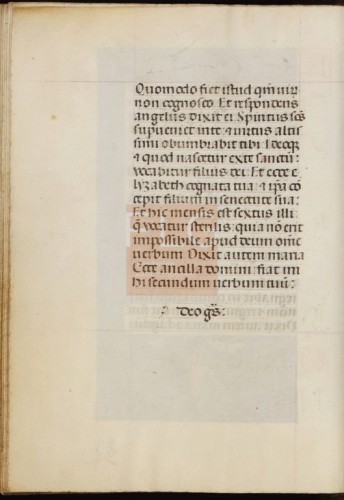 Quomodo fiet istud qm̄ uir
non cognosco. Et respondens
angelus dixit ei. Spiritus scs̄
supueniet in te & uirtus altis
simi obumbrabit tibi. Ideoq;
& quod nascetur ex te sanctū:
vocabitur filius dei. Et ecce e
lyzabeth cognata tua: & ipa cō
cepit filium in senectute sua:
Et hic mensis est sextus illi
q̄ vocatur sterilis: quia nō erit
impossibile apud deum omē
uerbum. Dixit autem maria
Ecce ancilla domini: fiat mi
hi secundum uerbum tuū:
Deo gr̄s: